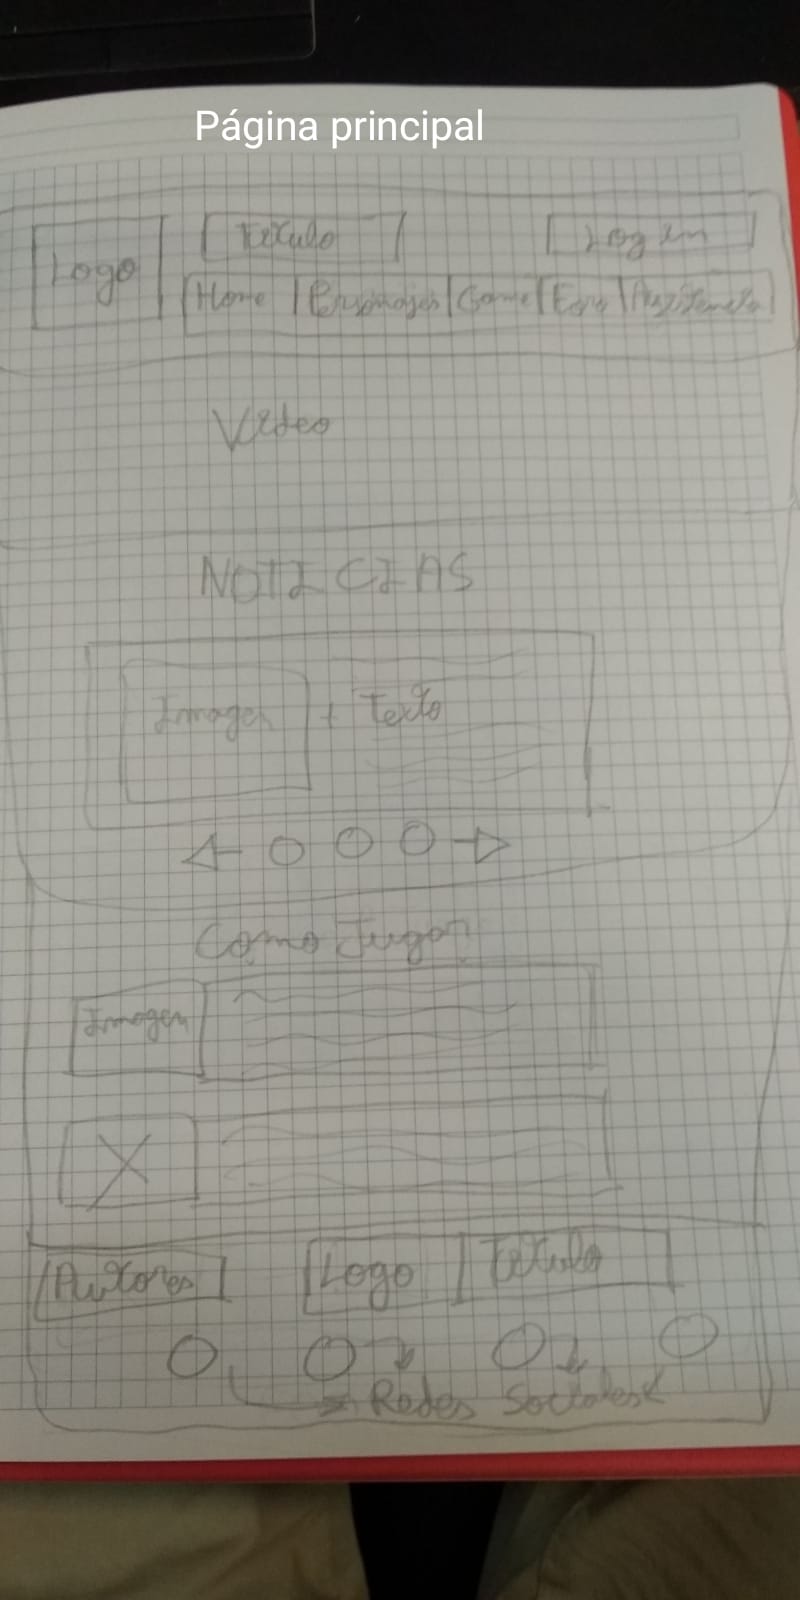 Página principal
Titulo
Log in
Logo
Home Personajes Game Foro Asistencia
Video
NOTICIAS
Imagen + Texto
Como Jugar
Imagen
Autores Logo Titulo
Redes Sociales